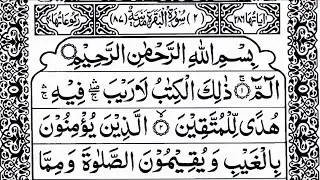 اٰیَاتُهَا ۲۸۶ (۲) سُوْرَةُ الْبَقَرَةِ مَدَنِيَّةٌ (۸۷) رُكُوْعَاتُهَا ۴۰
بِسْمِ اللّٰهِ الرَّحْمٰنِ الرَّحِيْمِ
الٓمّٓ ۚ﴿۱﴾ ذٰلِكَ الْكِتٰبُ لَا رَيْبَ ۛۚ فِيْهِ ۛۚ
هُدًى لِّلْمُتَّقِيْنَ ﴿۲﴾ الَّذِيْنَ يُؤْمِنُوْنَ
بِالْغَيْبِ وَ يُقِيْمُوْنَ الصَّلٰوةَ وَ مِمَّا